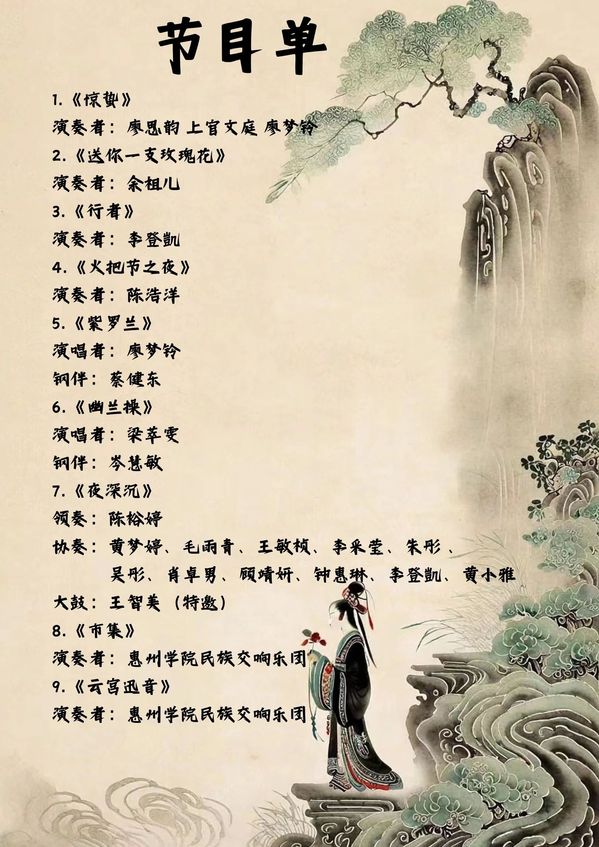 节目单
1.《惊蛰》
演奏者：廖思韵 上官文庭 廖梦铃
2.《送你一支玫瑰花》
演奏者：余祖儿
3.《行者》
演奏者：李登凯
4.《火把节之夜》
演奏者：陈浩洋
5.《紫罗兰》
演唱者：廖梦铃
钢伴：蔡健东
6.《幽兰操》
演唱者：梁萃雯
钢伴：岑慧敏
7.《夜深沉》
领奏：陈裕婷
协奏：黄梦婷、毛雨青、王敏桢、李采莹、朱彤、
吴彤、肖卓男、顾婧妍、钟惠琳、李登凯、黄小雅
大鼓：王智美（特邀）
8.《市集》
演奏者：惠州学院民族交响乐团
9.《云宫迅音》
演奏者：惠州学院民族交响乐团